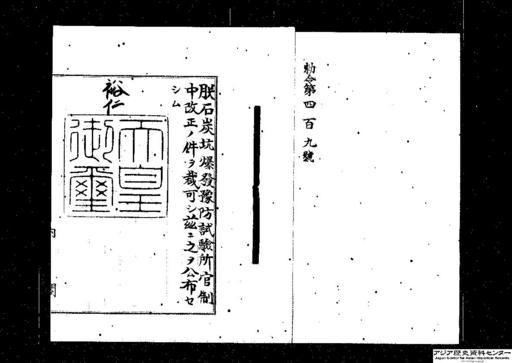 勅令第四百九號
朕石炭坑爆發豫防試驗所官制
中改正ノ件ヲ裁可シ茲ニ之ヲ公布セ
シム
裕仁
天皇
御璽
内閣
アジア歴史資料センター
Japan Center for Asian Historical Records